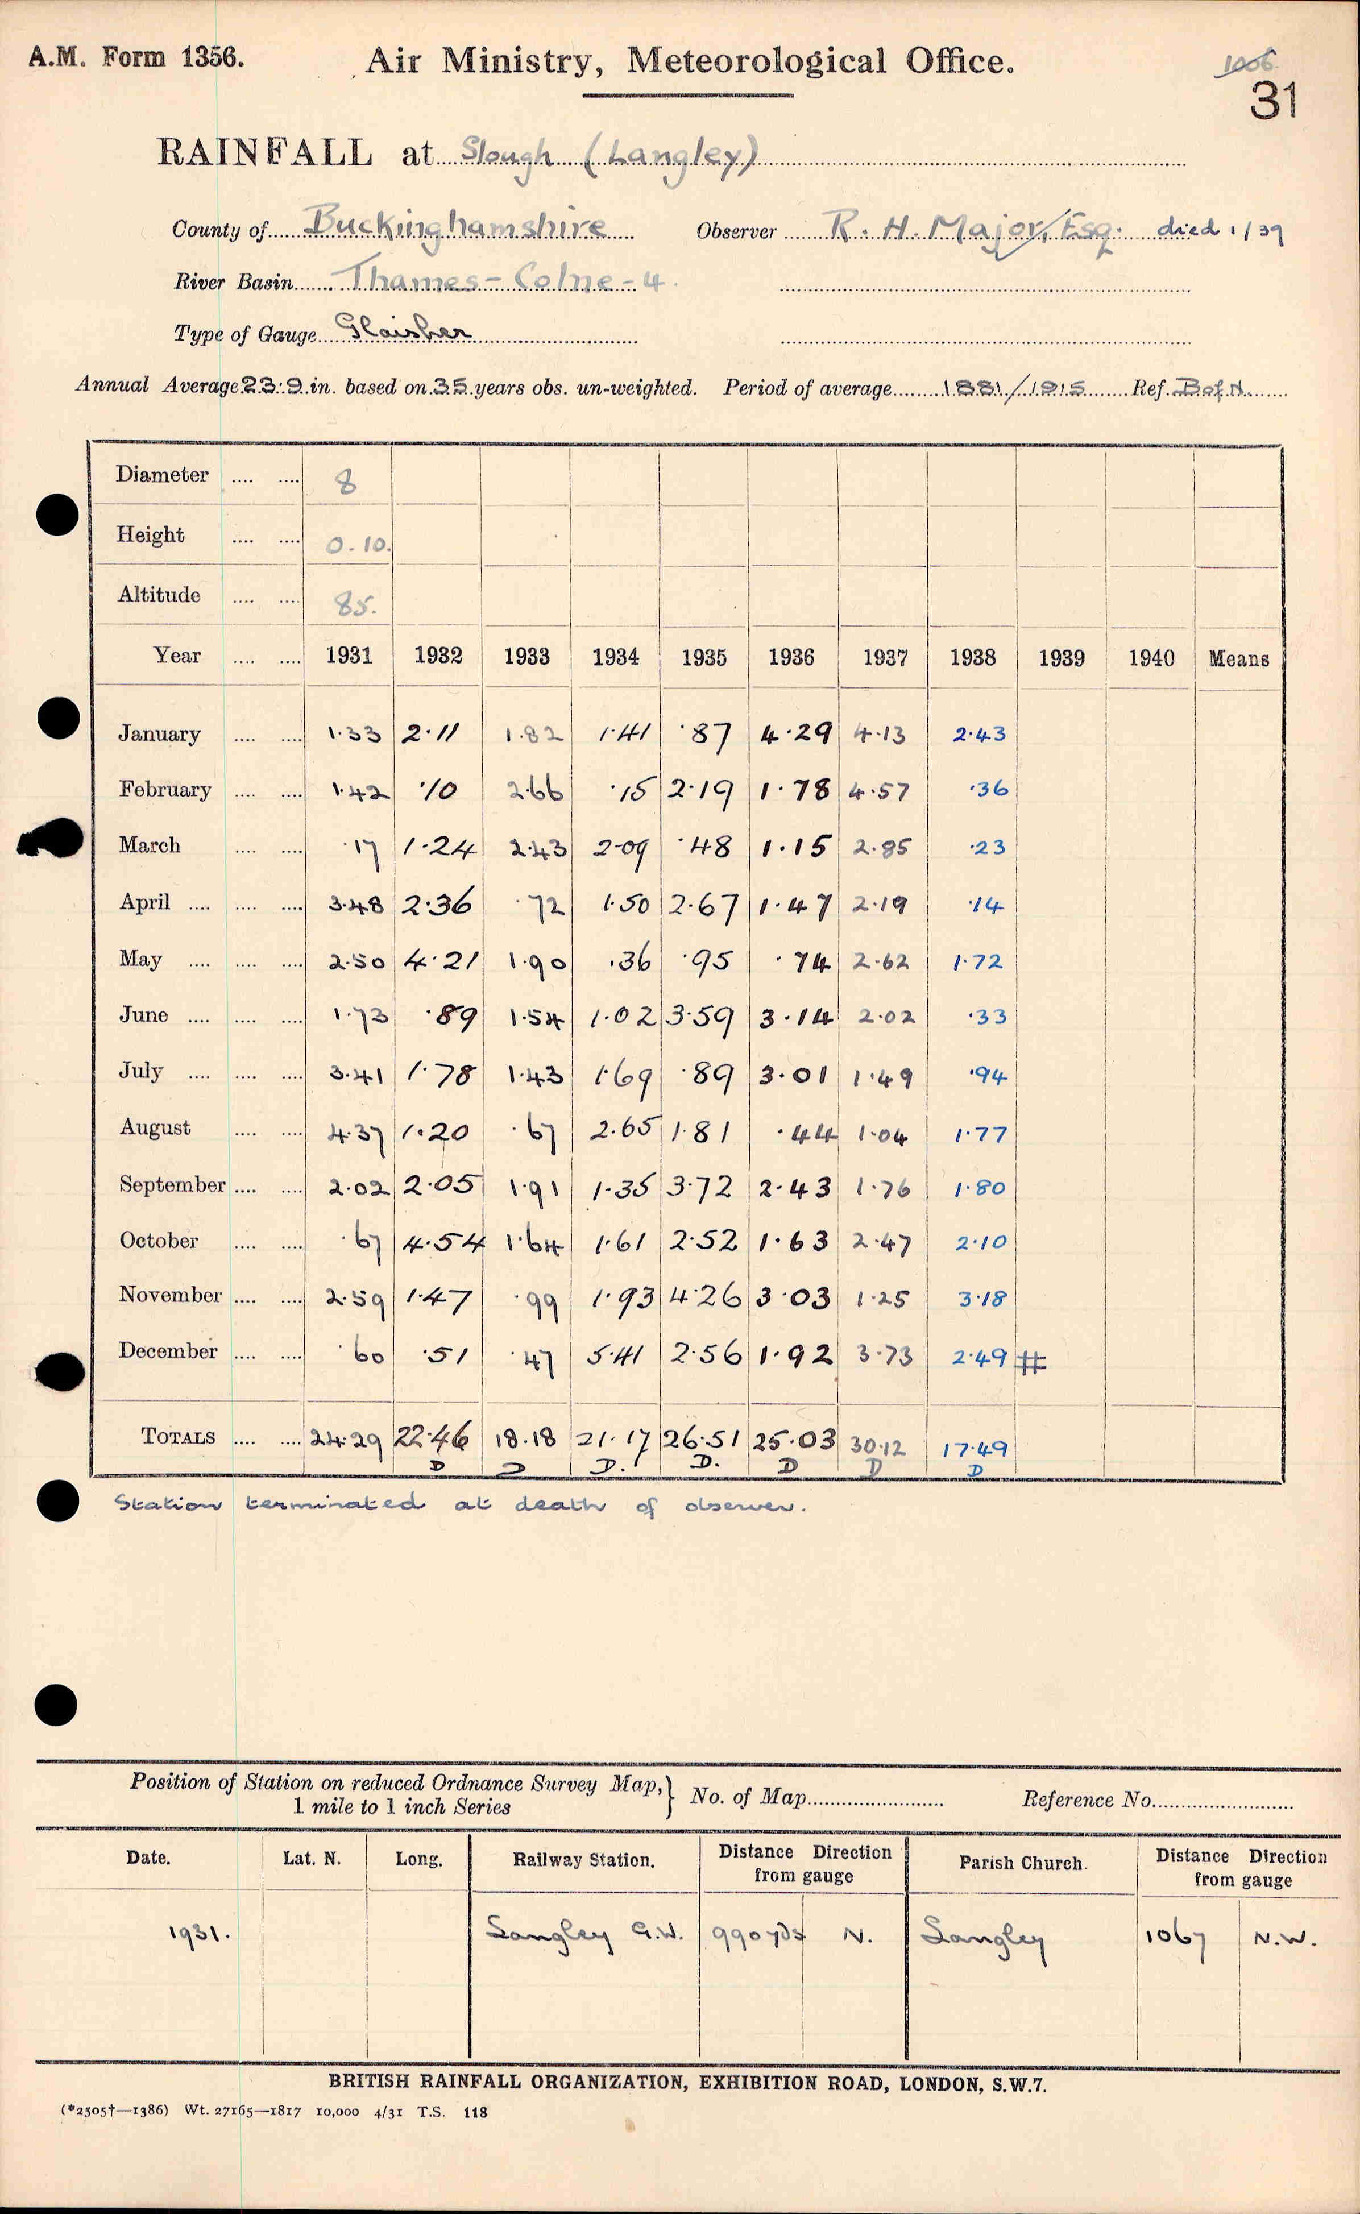 A.M. Form 1356. Air Ministry, Meteorological Office. 1006
31
RAINFALL at Slough (Langley)
County of Buckinghamshire Observer R. H. Major, Esq. died 1/39
River Basin Thames-Colne-4.
Type of Gauge Glaisher
Annual Average 23.9 in. based on 35 years obs. un-weighted. Period of average 1881/1915 Ref. B of N.
Diameter .... .... 8
Height .... .... 0.10.
Altitude .... .... 85.
Year .... .... 1931 1932 1933 1934 1935 1936 1937 1938 1939 1940 Means
January .... .... 1.33 2.11 1.82 1.41 .87 4.29 4.13 2.43
February .... .... 1.42 .10 2.66 .15 2.19 1.78 4.57 .36
March .... .... .17 1.24 2.43 2.09 .48 1.15 2.85 .23
April .... .... .... 3.48 2.36 .72 1.50 2.67 1.47 2.19 .14
May .... .... .... 2.50 4.21 1.90 .36 .95 .74 2.62 1.72
June .... .... .... 1.73 .89 1.54 1.02 3.59 3.14 2.02 .33
July .... .... .... 3.41 1.78 1.43 1.69 .89 3.01 1.49 .94
August .... .... 4.37 1.20 .67 2.65 1.81 .44 1.04 1.77
September .... .... 2.02 2.05 1.91 1.35 3.72 2.43 1.76 1.80
October .... .... .67 4.54 1.64 1.61 2.52 1.63 2.47 2.10
November .... .... 2.59 1.47 .99 1.93 4.26 3.03 1.25 3.18
December .... .... .60 .51 .47 5.41 2.56 1.92 3.73 2.49 #
TOTALS .... .... 24.29 22.46 18.18 21.17 26.51 25.03 30.12 17.49
D D D. D. D D D
Station terminated at death of observer.
Position of Station on reduced Ordnance Survey Map,} No. of Map Reference No.
1 mile to 1 inch Series
Date. Lat. N. Long. Railway Station. Distance Direction Parish Church. Distance Direction
from gauge from gauge
1931. Langley G.W. 990 yds N. Langley 1067 N.W.
BRITISH RAINFALL ORGANIZATION, EXHIBITION ROAD, LONDON, S.W.7.
(*2505†—1386) Wt. 27165—1817 10,000 4/31 T.S. 118